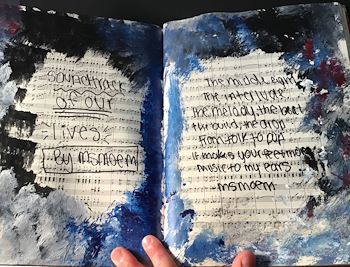 Soundtrack
of our
lives
By msmoem
The middle eight
The interlude
The melody, the beat
The build, the drop
From folk to pop
It makes your feet move
music to my ears
msmoem